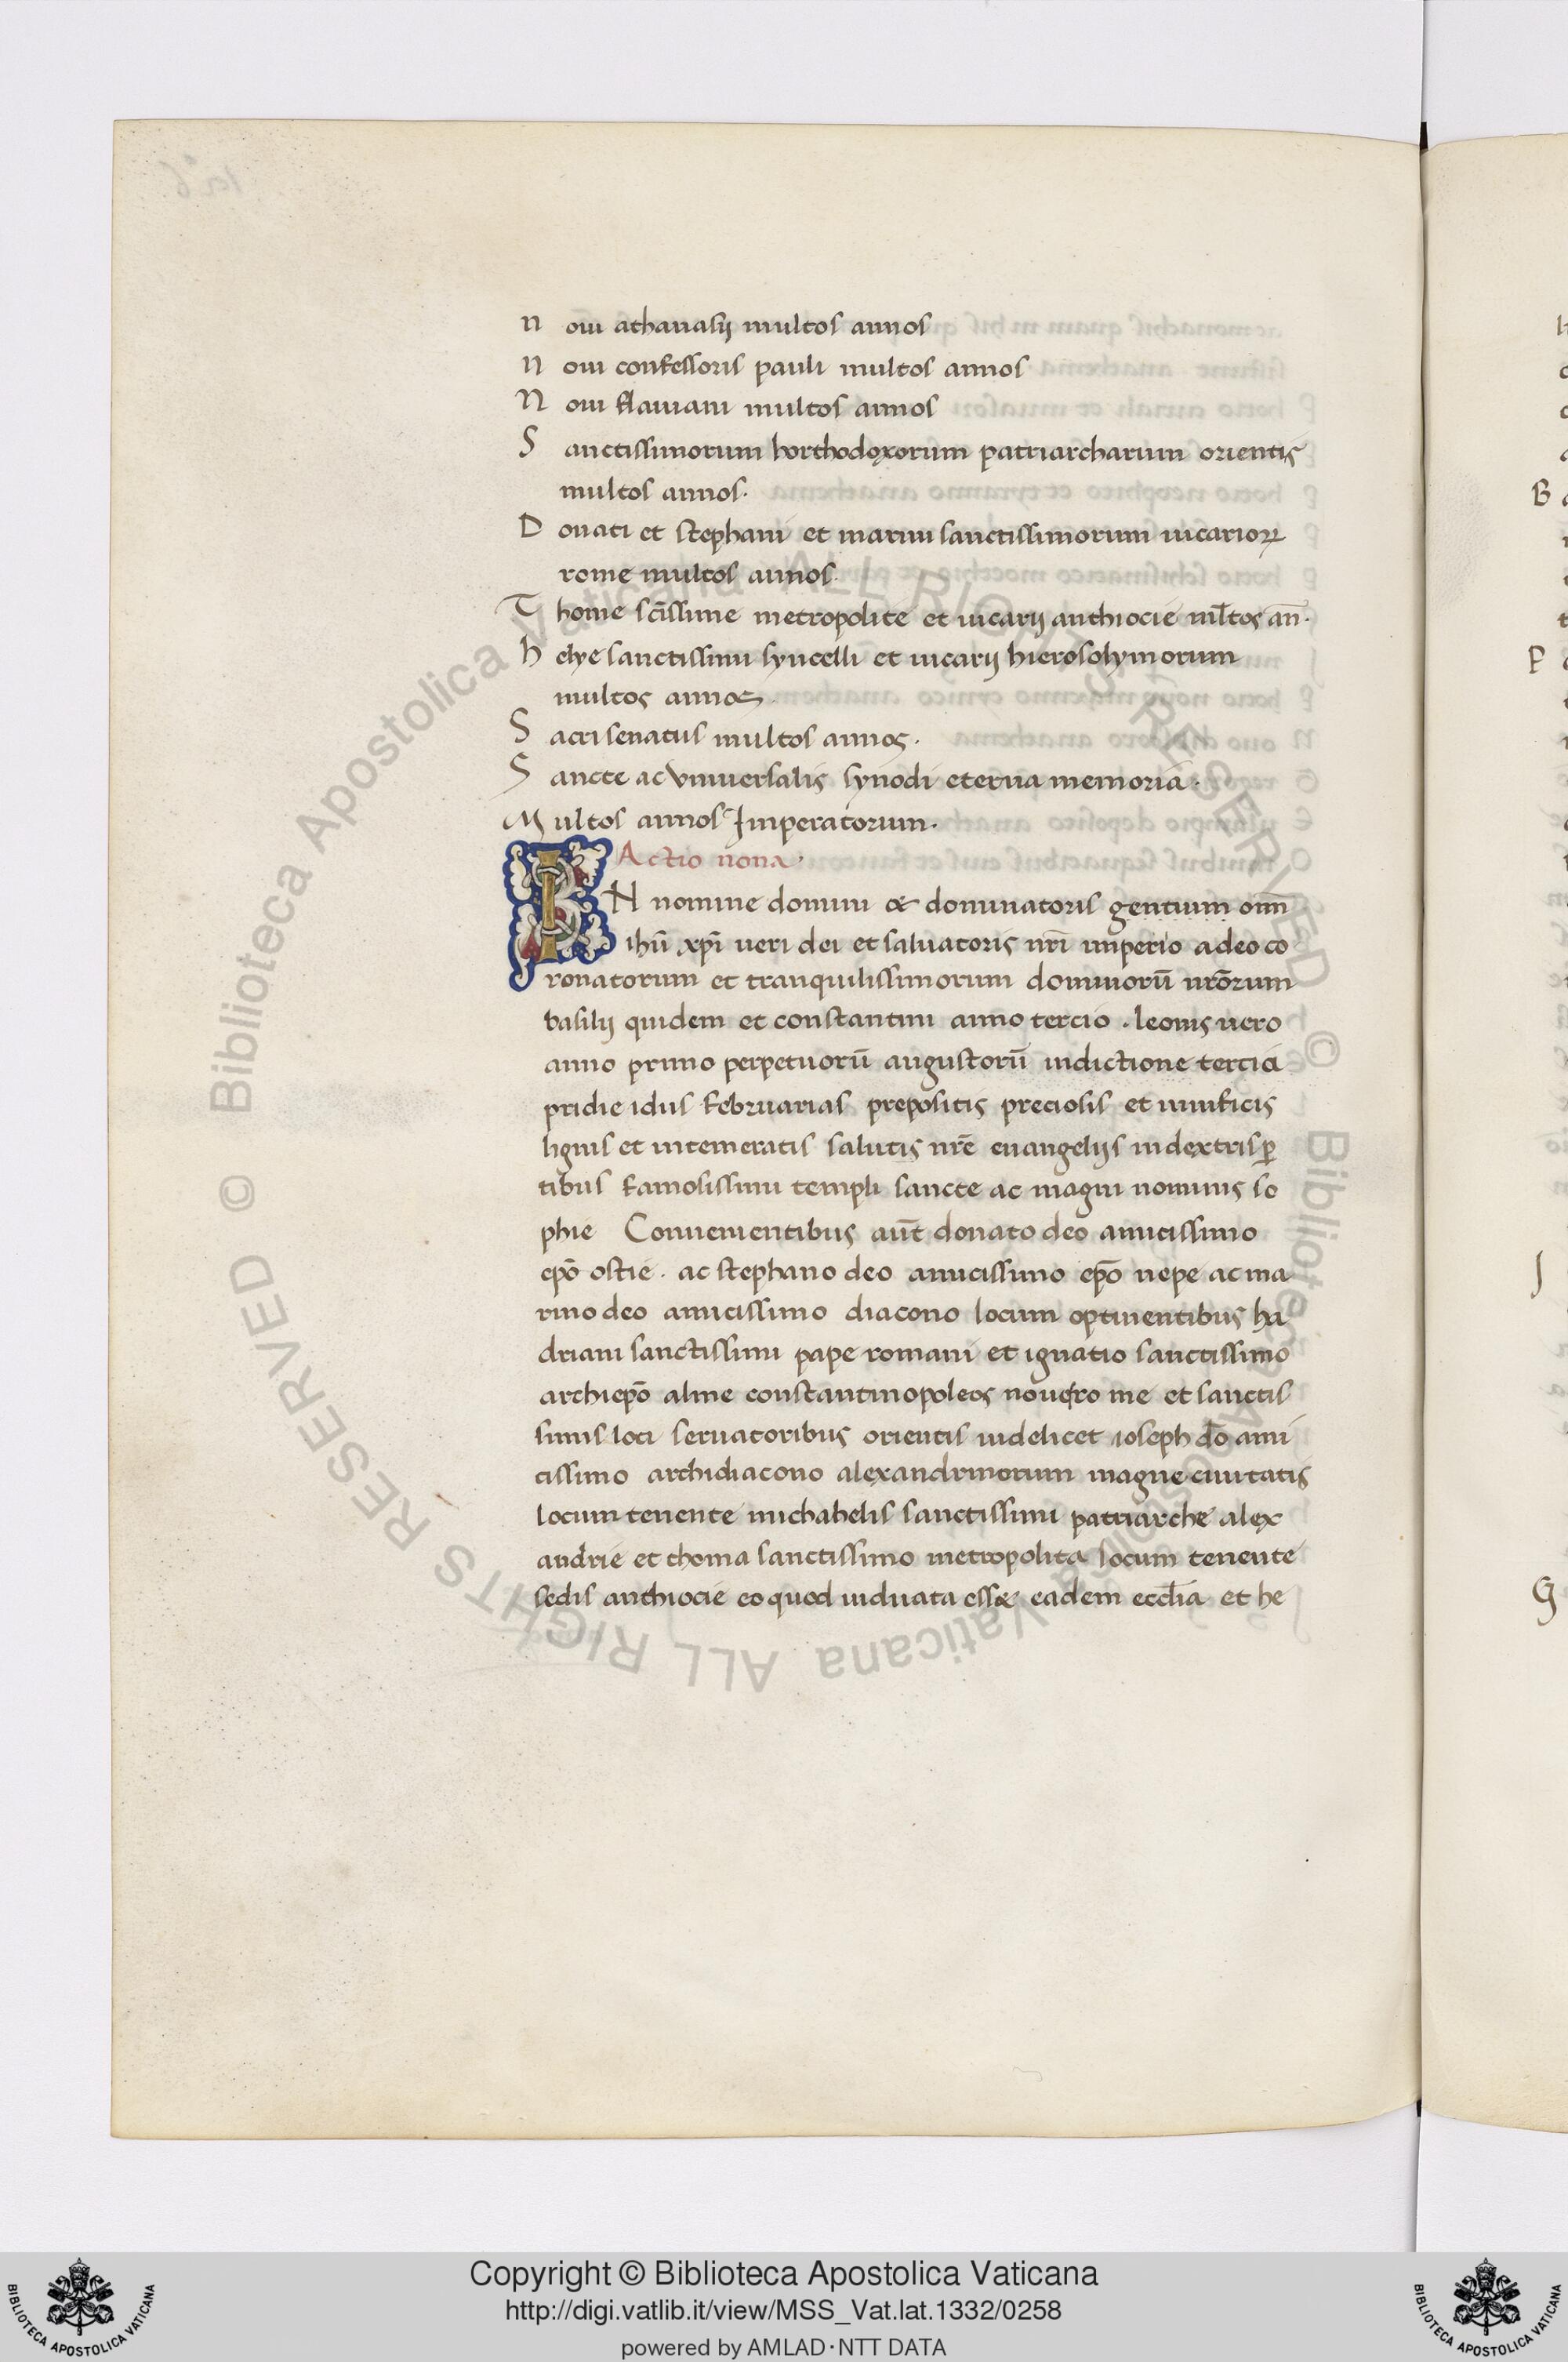 noui athanasij multos annos
noui confessoris pauli multos annos
Noui flauiani multos annos
Sanctissimorum horthodoxorum patriarcharum orientis
multos annos.
Donati et stephani et marini sanctissimorum uicarioꝝ
rome multos annos.
Thome sc̄issime metropolite et uicarij anthiocie ml̄tos an̄.
helye sanctissimi syncelli et uicarij hierosolymorum
multos annos.
Sacri senatus multos annos.
Sancte ac vniuersalis synodi eterna memoria.
Multos annos Imperatorum.
Actio nona.
IN nomine domini & dominatoris gentium om̄
ihū xpī ueri dei et saluatoris nrī imperio a deo co
ronatorum et tranquilissimorum dominorū nrōrum
basilij quidem et constantini anno tercio. leonis uero
anno primo perpetuorū augustorū indictione tercia
pridie idus februarias prepositis preciosis et uiuificis
lignis et intemeratis salutis nrē euangelijs in dextris ꝑ
tibus famosissimi templi sancte ac magni nominis so
phie Conuenientibus aūt donato deo amicissimo
ep̄o ostie. ac stephano deo amicissimo ep̄o nepe ac ma
rino deo amicissimo diacono locum optinentibus ha
driani sanctissimi pape romani et ignatio sanctissimo
archiep̄o alme constantinopoleos noue ro me et sanctis
simis loci seruatoribus orientis uidelicet ioseph dō ami
cissimo archidiacono alexandrinorum magne ciuitatis
locum tenente michahelis sanctissimi patriarche alex
andrie et thoma sanctissimo metropolita locum tenente
sedis anthiocie eo quod uiduata ess& eadem eccl̄ia et he
Copyright © Biblioteca Apostolica Vaticana
http://digi.vatlib.it/view/MSS_Vat.lat.1332/0258
powered by AMLAD·NTT DATA